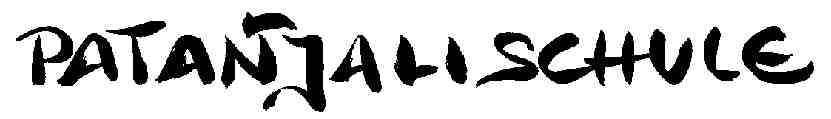 PATAÑJALISCHULE